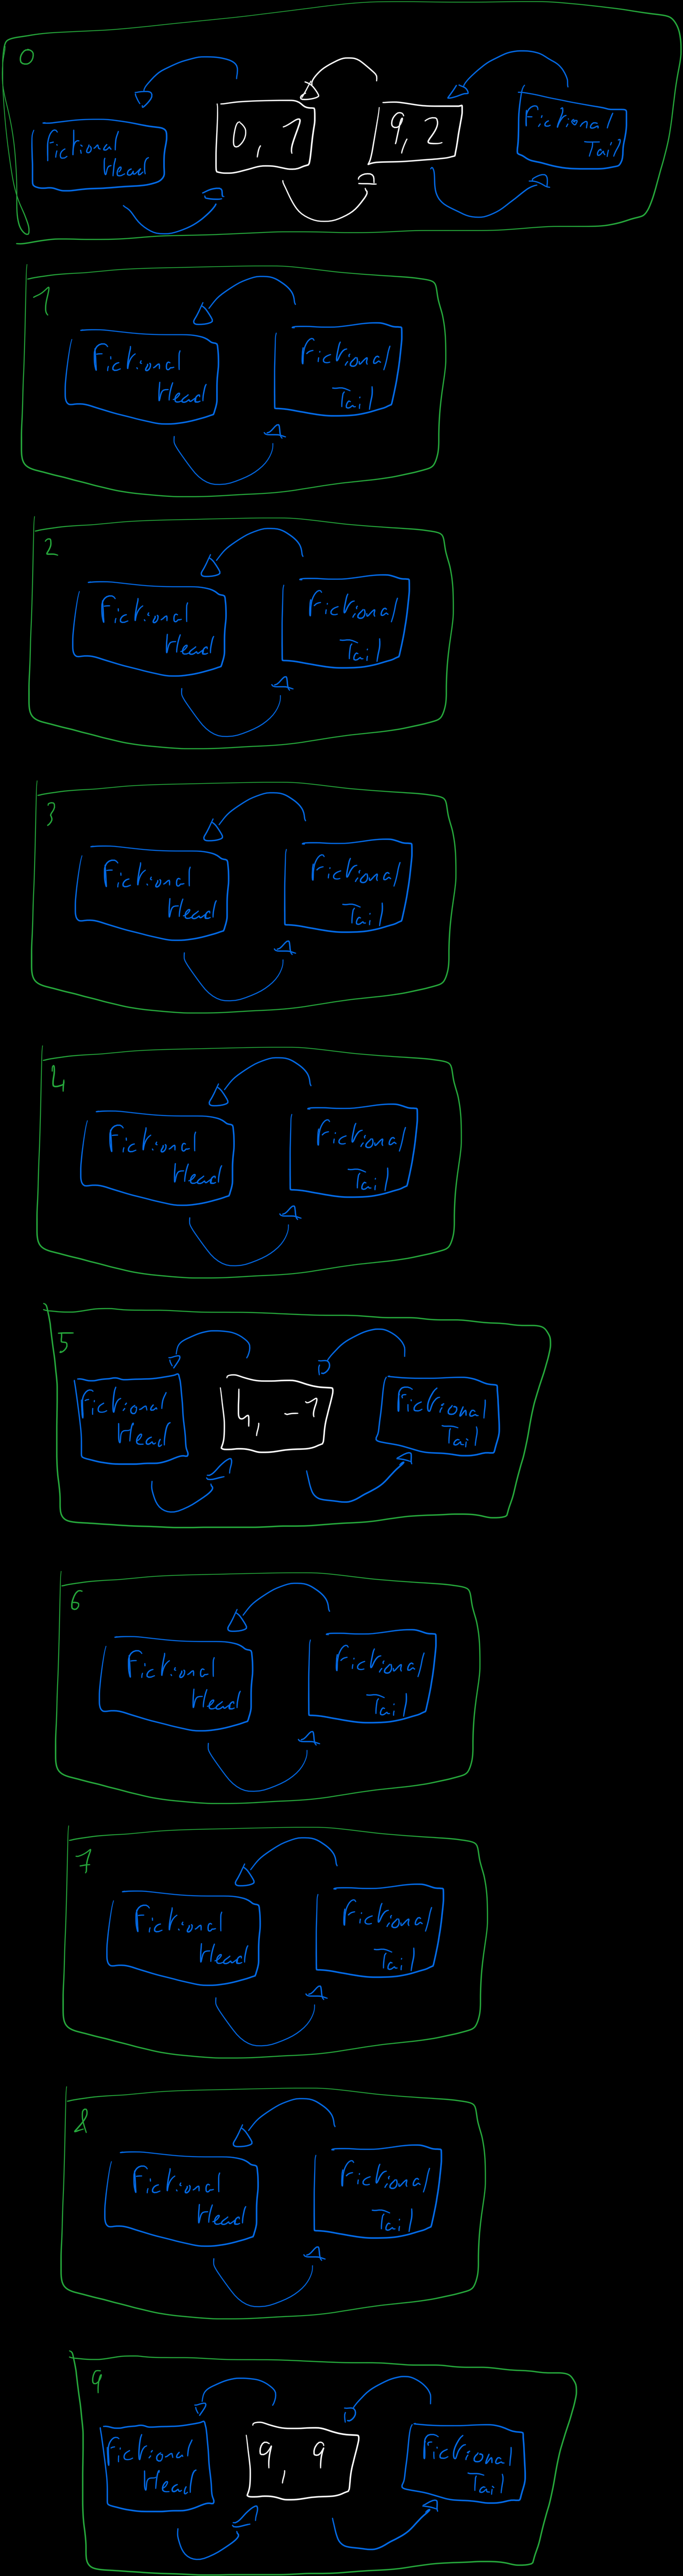 0
Fictional
Head
0, 1
9, 2
Fictional
Tail
1
Fictional
Head
Fictional
Tail
2
Fictional
Head
Fictional
Tail
3
Fictional
Head
Fictional
Tail
4
Fictional
Head
Fictional
Tail
5
Fictional
Head
4, -1
Fictional
Tail
6
Fictional
Head
Fictional
Tail
7
Fictional
Head
Fictional
Tail
8
Fictional
Head
Fictional
Tail
9
Fictional
Head
9, 9
Fictional
Tail